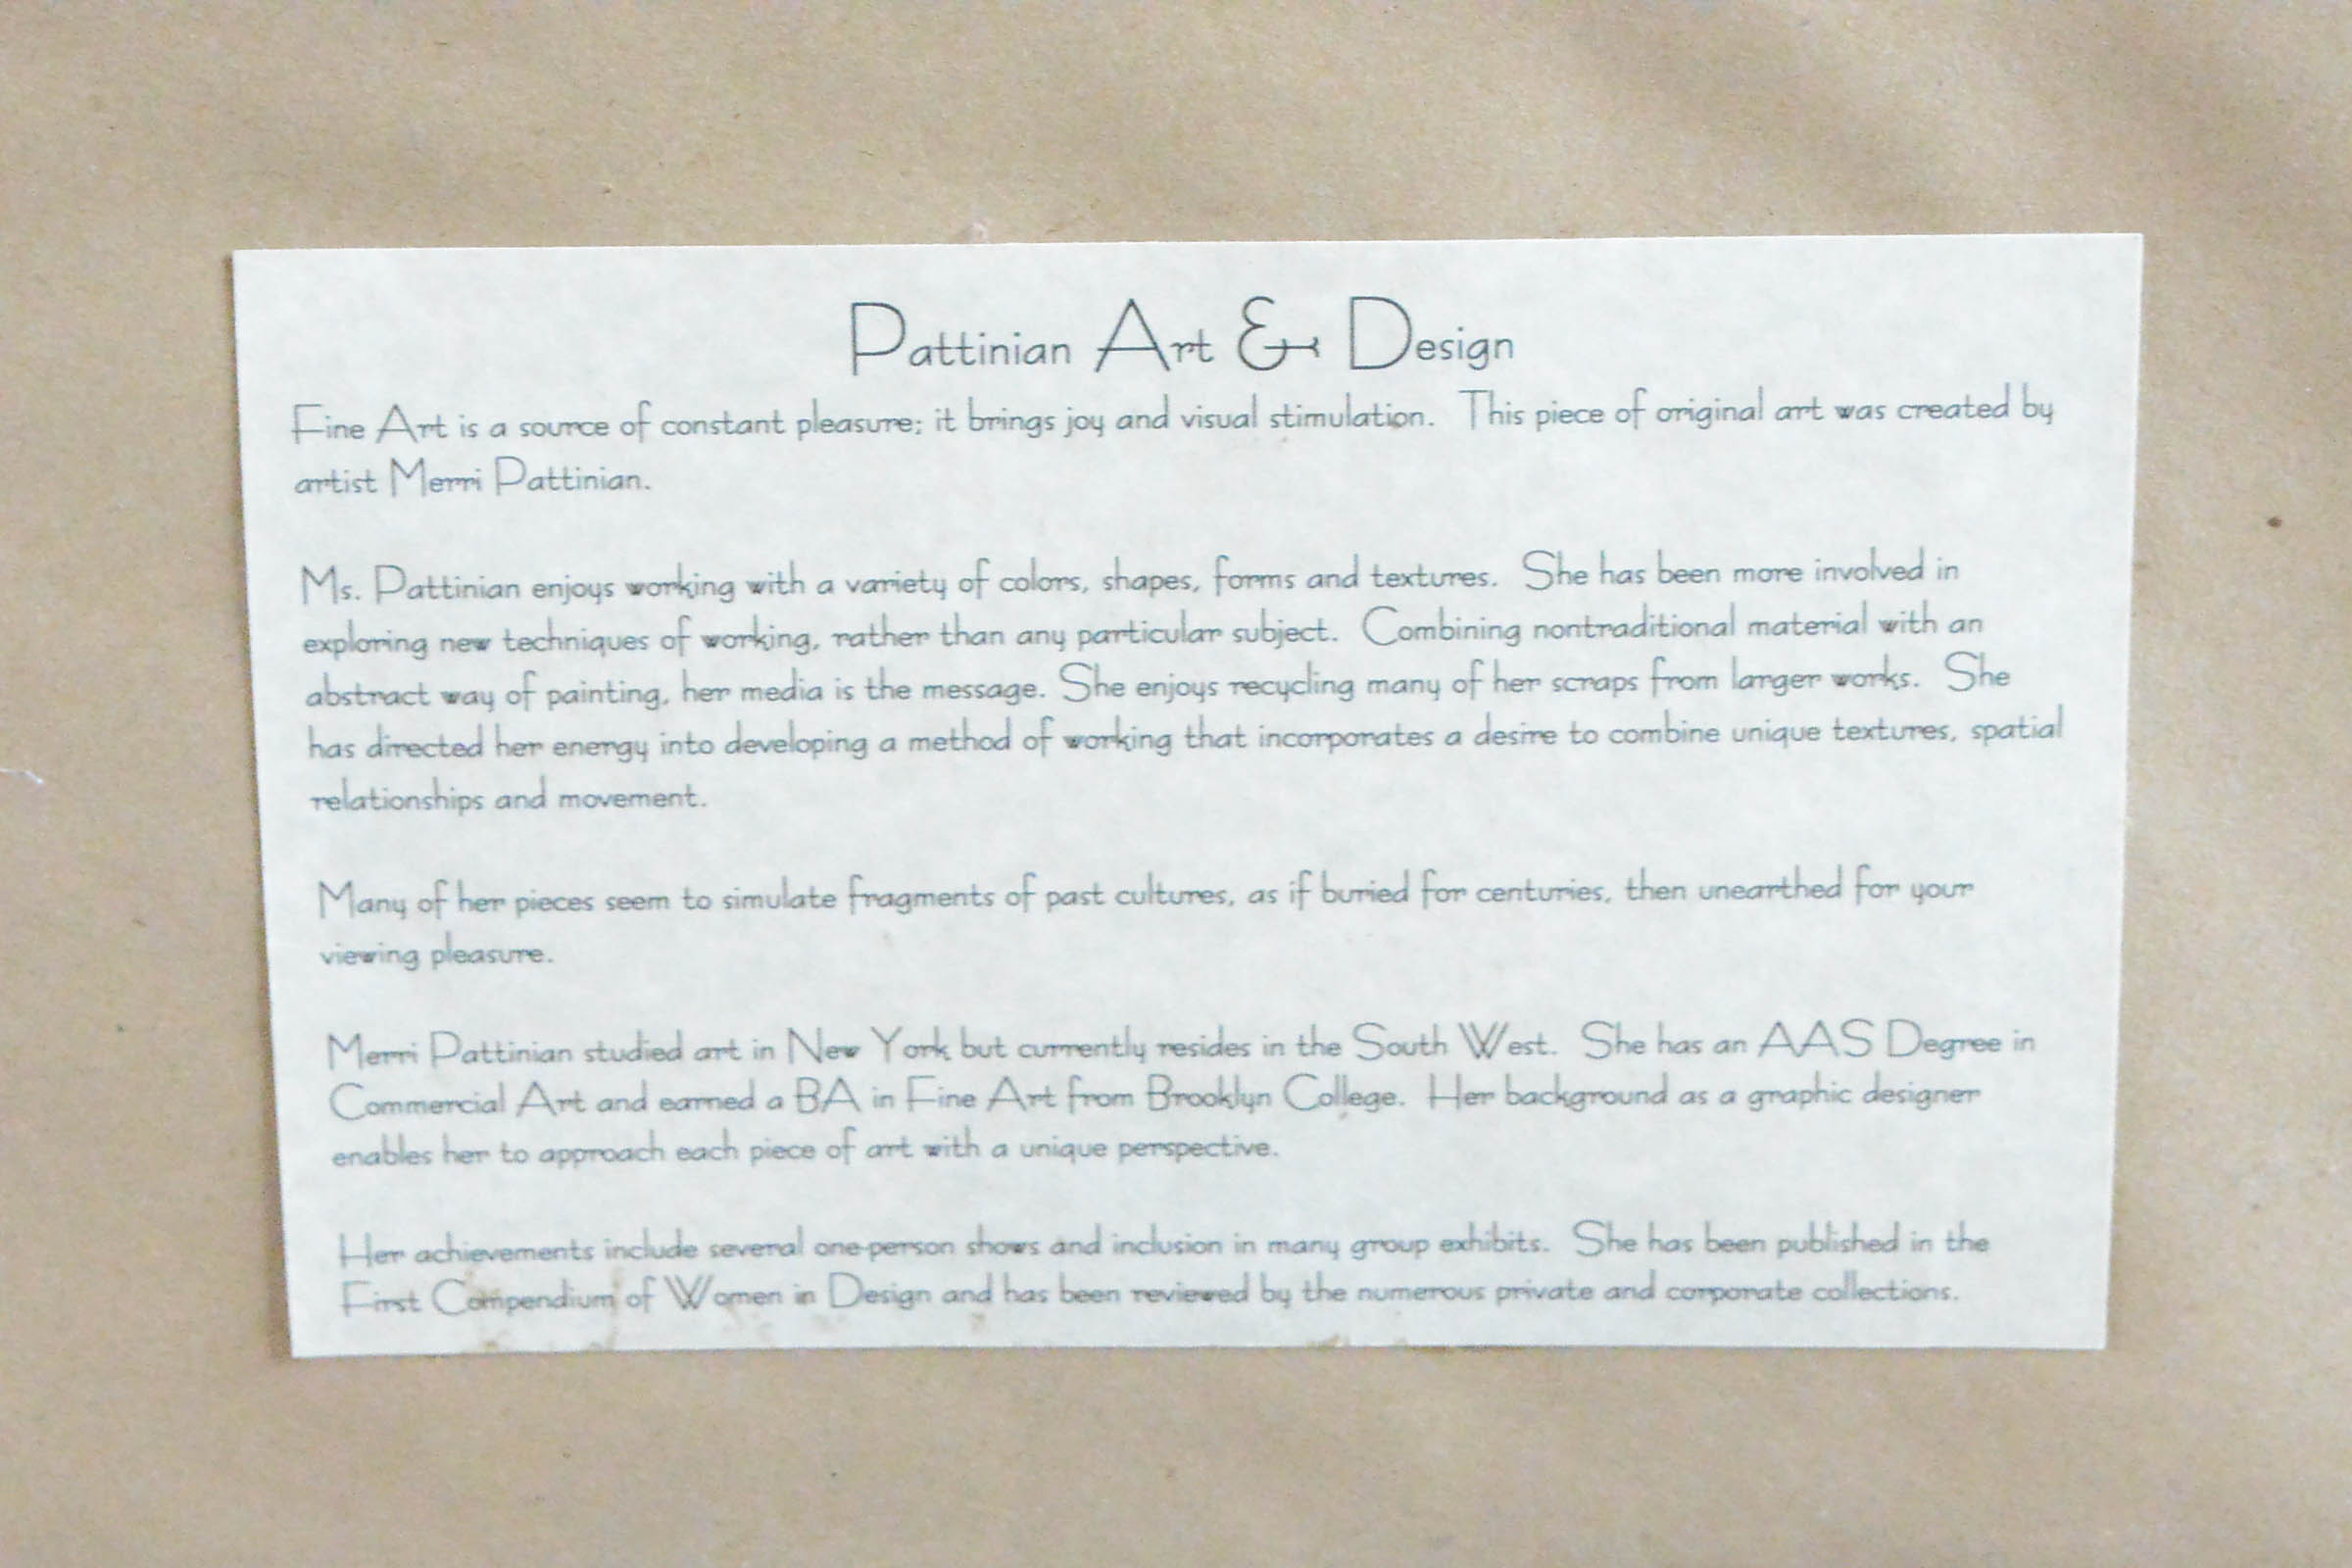 Pattinian Art & Design
Fine Art is a source of constant pleasure; it brings joy and visual stimulation. This piece of original art was created by
artist Merri Pattinian.
Ms. Pattinian enjoys working with a variety of colors, shapes, forms and textures. She has been more involved in
exploring new techniques of working, rather than any particular subject. Combining nontraditional material with an
abstract way of painting, her media is the message. She enjoys recycling many of her scraps from larger works. She
has directed her energy into developing a method of working that incorporates a desire to combine unique textures, spatial
relationships and movement.
Many of her pieces seem to simulate fragments of past cultures, as if buried for centuries, then unearthed for your
viewing pleasure.
Merri Pattinian studied art in New York but currently resides in the South West. She has an AAS Degree in
Commercial Art and earned a BA in Fine Art from Brooklyn College. Her background as a graphic designer
enables her to approach each piece of art with a unique perspective.
Her achievements include several one-person shows and inclusion in many group exhibits. She has been published in the
First Compendium of Women in Design and has been reviewed by the numerous private and corporate collections.